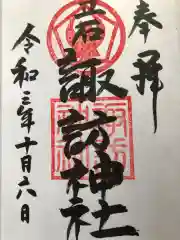 奉拝
岩諏訪神社
令和三年十月六日